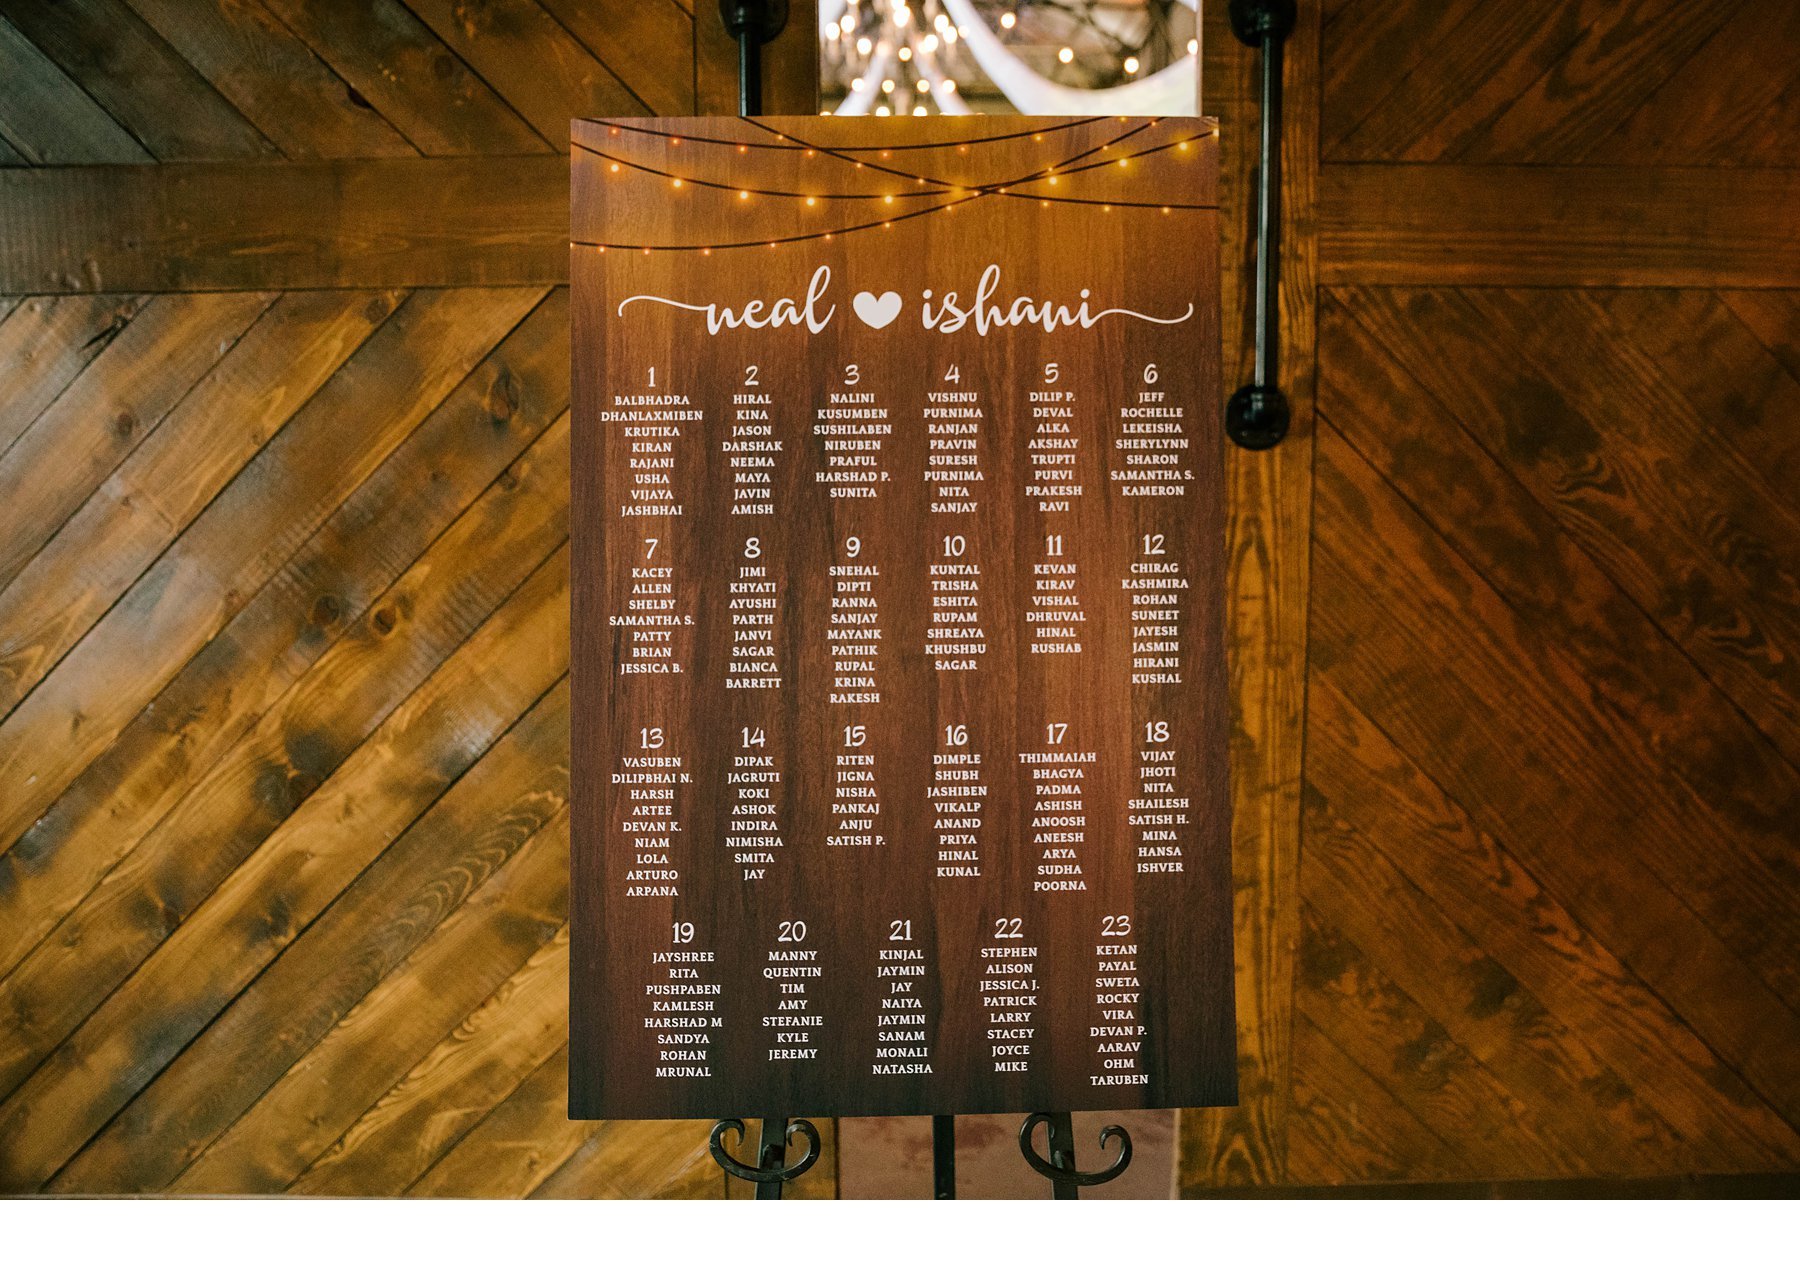 neal ♥ ishani
1
BALBHADRA
DHANLAXMIBEN
KRUTIKA
KIRAN
RAJANI
USHA
VIJAYA
JASHBHAI
2
HIRAL
KINA
JASON
DARSHAK
NEEMA
MAYA
JAVIN
AMISH
3
NALINI
KUSUMBEN
SUSHILABEN
NIRUBEN
PRAFUL
HARSHAD P.
SUNITA
4
VISHNU
PURNIMA
RANJAN
PRAVIN
SURESH
PURNIMA
NITA
SANJAY
5
DILIP P.
DEVAL
ALKA
AKSHAY
TRUPTI
PURVI
PRAKESH
RAVI
6
JEFF
ROCHELLE
LEKEISHA
SHERYLYNN
SHARON
SAMANTHA S.
KAMERON
7
KACEY
ALLEN
SHELBY
SAMANTHA S.
PATTY
BRIAN
JESSICA B.
8
JIMI
KHYATI
AYUSHI
PARTH
JANVI
SAGAR
BIANCA
BARRETT
9
SNEHAL
DIPTI
RANNA
SANJAY
MAYANK
PATHIK
RUPAL
KRINA
RAKESH
10
KUNTAL
TRISHA
ESHITA
RUPAM
SHREAYA
KHUSHBU
SAGAR
11
KEVAN
KIRAV
VISHAL
DHRUVAL
HINAL
RUSHAB
12
CHIRAG
KASHMIRA
ROHAN
SUNEET
JAYESH
JASMIN
HIRANI
KUSHAL
13
VASUBEN
DILIPBHAI N.
HARSH
ARTEE
DEVAN K.
NIAM
LOLA
ARTURO
ARPANA
14
DIPAK
JAGRUTI
KOKI
ASHOK
INDIRA
NIMISHA
SMITA
JAY
15
RITEN
JIGNA
NISHA
PANKAJ
ANJU
SATISH P.
16
DIMPLE
SHUBH
JASHIBEN
VIKALP
ANAND
PRIYA
HINAL
KUNAL
17
THIMMAIAH
BHAGYA
PADMA
ASHISH
ANOOSH
ANEESH
ARYA
SUDHA
POORNA
18
VIJAY
JHOTI
NITA
SHAILESH
SATISH H.
MINA
HANSA
ISHVER
19
JAYSHREE
RITA
PUSHPABEN
KAMLESH
HARSHAD M
SANDYA
ROHAN
MRUNAL
20
MANNY
QUENTIN
TIM
AMY
STEFANIE
KYLE
JEREMY
21
KINJAL
JAYMIN
JAY
NAIYA
JAYMIN
SANAM
MONALI
NATASHA
22
STEPHEN
ALISON
JESSICA J.
PATRICK
LARRY
STACEY
JOYCE
MIKE
23
KETAN
PAYAL
SWETA
ROCKY
VIRA
DEVAN P.
AARAV
OHM
TARUBEN